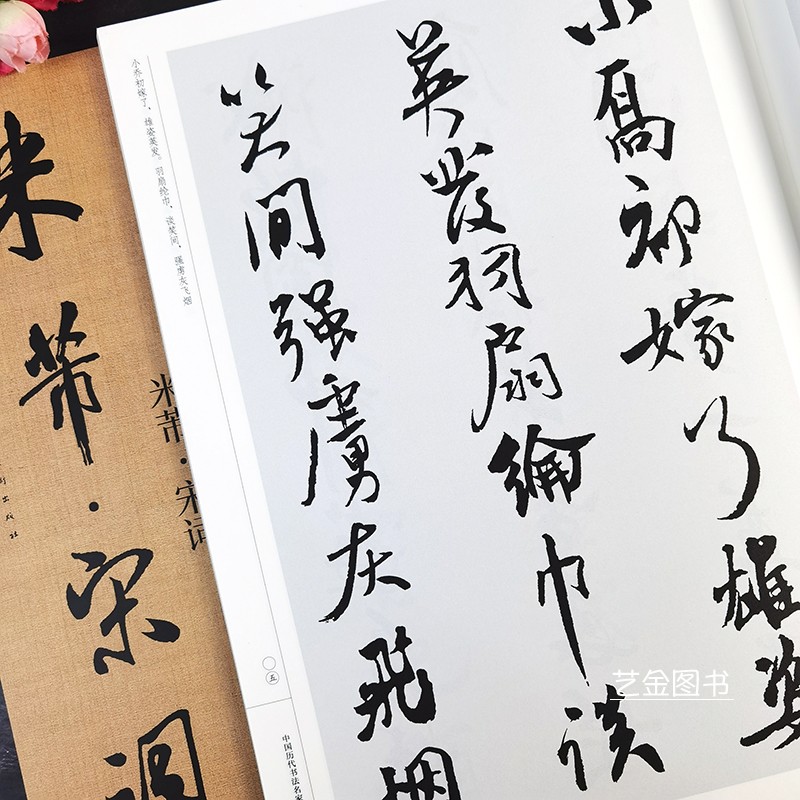 小喬初嫁了雄姿
英發羽扇綸巾談
笑間強虜灰飛烟
小乔初嫁了，雄姿英发。羽扇纶巾，谈笑间，强虏灰飞烟
〇五
中国历代书法名家
米芾·宋词
米芾·宋词
出版社
艺金图书